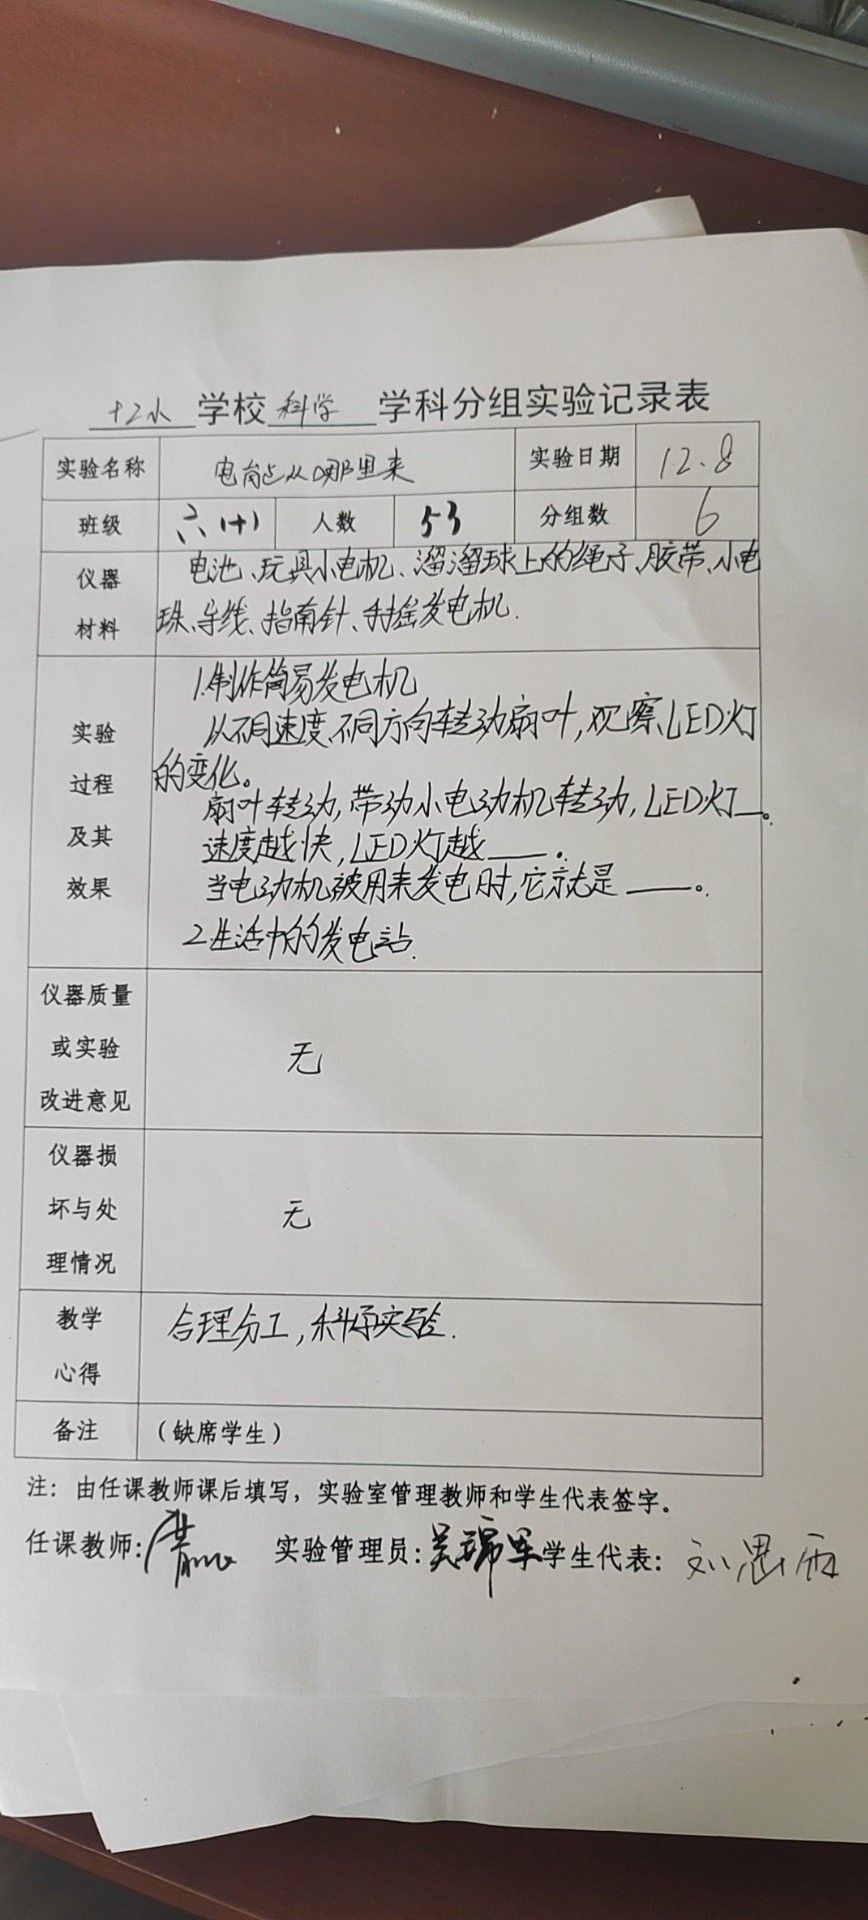 十2小学校科学学科分组实验记录表
实验名称 电能从哪里来 实验日期 12.8
班级 六(十) 人数 53 分组数 6
仪器材料 电池、玩具小电机、溜溜球上的绳子、胶带、小电
珠、导线、指南针、手摇发电机.
实验过程及其效果
1.制作简易发电机
从不同速度、不同方向转动扇叶,观察LED灯
的变化。
扇叶转动,带动小电动机转动,LED灯__。
速度越快,LED灯越___。
当电动机被用来发电时,它就是____。
2.生活中的发电站.
仪器质量或实验改进意见 无
仪器损坏与处理情况 无
教学心得 合理分工,科学实验.
备注 (缺席学生)
注:由任课教师课后填写,实验室管理教师和学生代表签字。
任课教师: 实验管理员:吴瑞军 学生代表:刘思雨